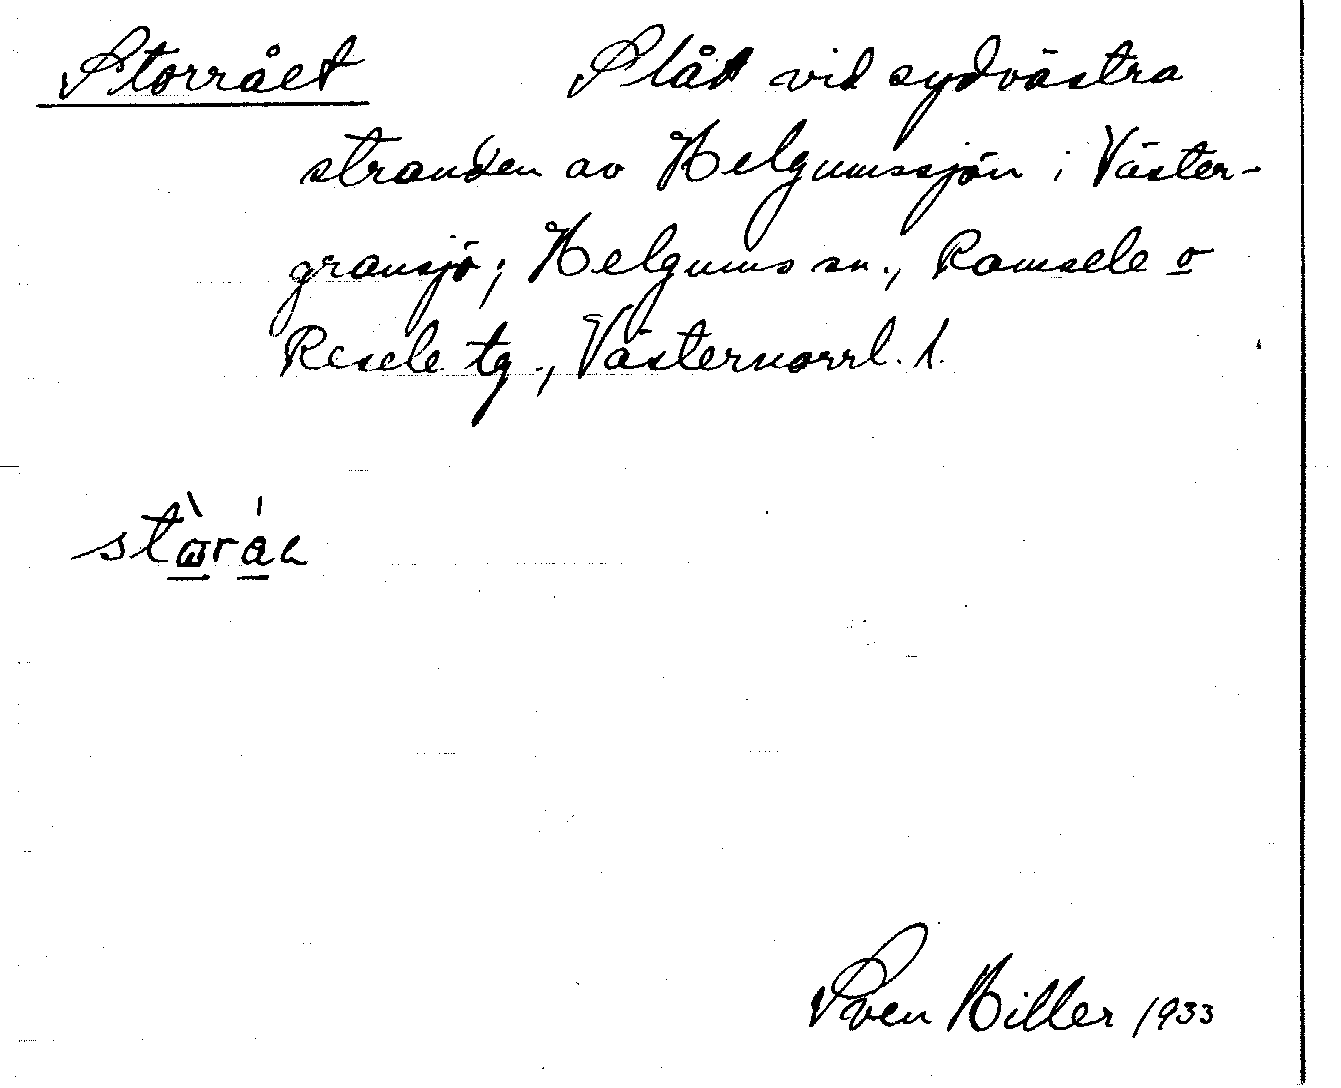 Storrået Slåt vid sydvästra
stranden av Helgumssjön i Väster-
gransjö; Helgums sn., Ramsele o
Resele tg., Västernorrl. l.
Sven Hiller 1933